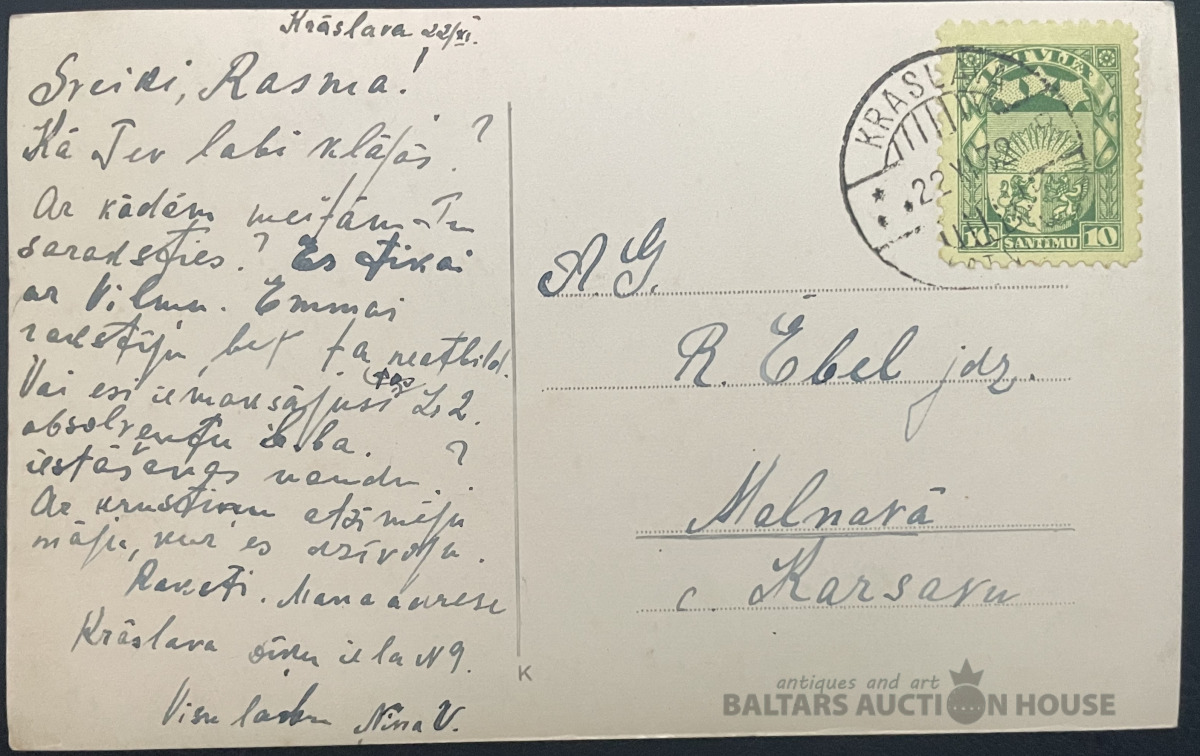 Krāslava 22/XI.
Sveiki, Rasma!
Kā Tev labi klājās?
Ar kādām meitām Tu
saraksties? Es tikai
ar Vilmu. Emmai
rakstīju bet ta neatbild.
Vai esi iemaksājusi tos Ls 2.
absolventu
iestāšanās naudu?
Ar krustiņu atzīmēju
māju, kur es dzīvoju.
Raksti. Mana adrese
Krāslava iela N 9.
Visu labu Nina V.
A. G.
R. Ēbel jdz.
Malnavā
c. Karsavu
KRASLAVA
22 XI
LATVIJA
10 SANTIMU 10
K
antiques and art
BALTARS AUCTION HOUSE